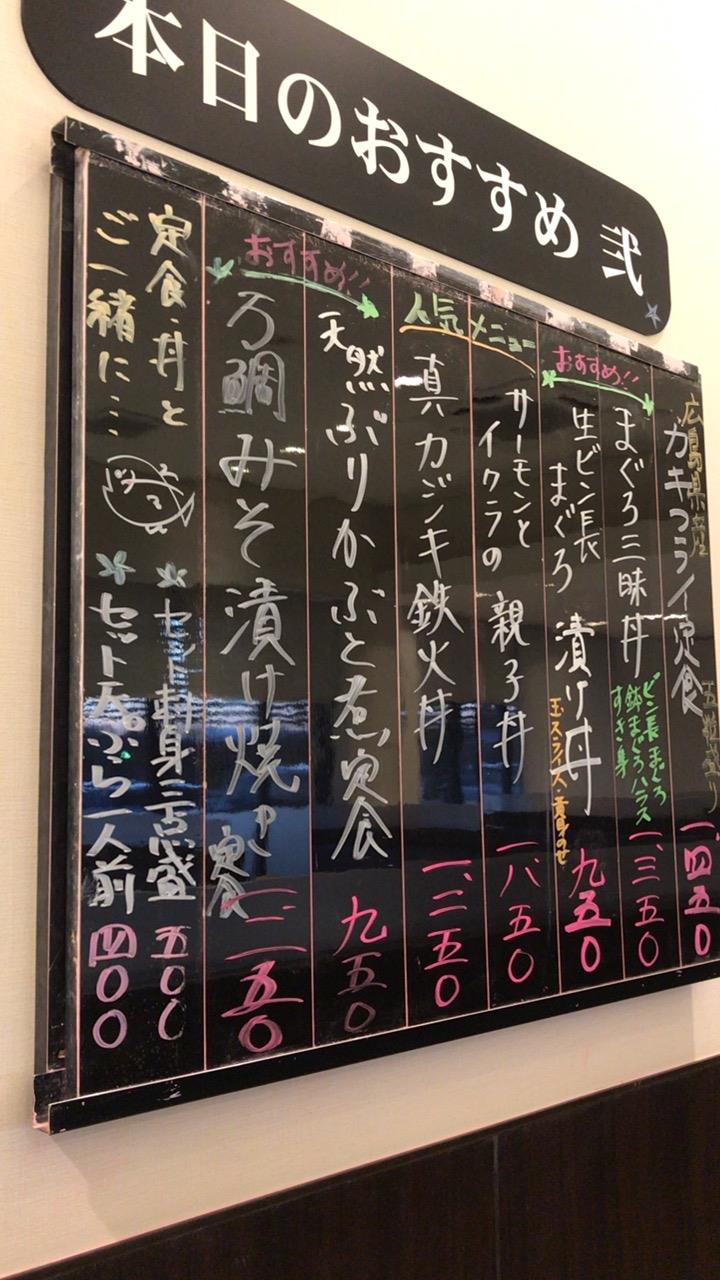 本日のおすすめ 弐
広島県産
カキフライ定食
五粒盛り
一、四五〇
おすすめ!!
まぐろ三昧丼
ビン長まぐろ
鉢まぐろハラス
すき身
一、三五〇
生ビン長
まぐろ
漬け丼
玉スライス・黄身のせ
九五〇
人気メニュー
サーモンと
イクラの
親子丼
一、八五〇
真カジキ鉄火丼
一、二五〇
おすすめ!!
天然ぶりかぶと煮定食
九五〇
真鯛みそ漬け焼き定食
一、一五〇
定食・丼と
ご一緒に…
セット刺身三点盛
五〇〇
セット天ぷら一人前
四〇〇